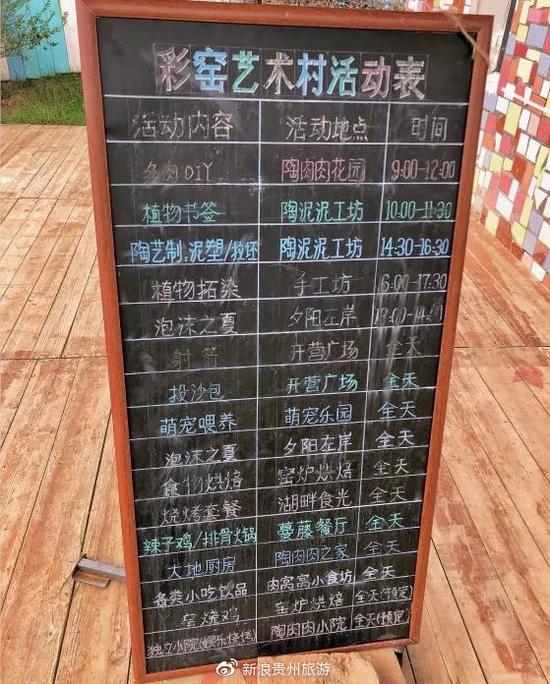 彩窑艺术村活动表
活动内容 活动地点 时间
多肉DIY 陶肉肉花园 9:00-12:00
植物书签 陶泥泥工坊 10:00-11:30
陶艺制.泥塑/拉坯 陶泥泥工坊 14:30-16:30
植物拓染 手工坊 16:00-17:30
泡沫之夏 夕阳左岸
射箭 开营广场 全天
投沙包 开营广场 全天
萌宠喂养 萌宠乐园 全天
泡沫之夏 夕阳左岸 全天
食物烘焙 窑炉烘焙 全天
烧烤套餐 湖畔食光 全天
辣子鸡/排骨火锅 蔓藤餐厅 全天
大地厨房 陶肉肉之家 全天
各类小吃饮品 肉窝窝小食坊 全天
窑烧鸡 窑炉烘焙 全天(预定)
独立小院(娱乐烧烤) 陶肉肉小院 全天(预定)
新浪贵州旅游